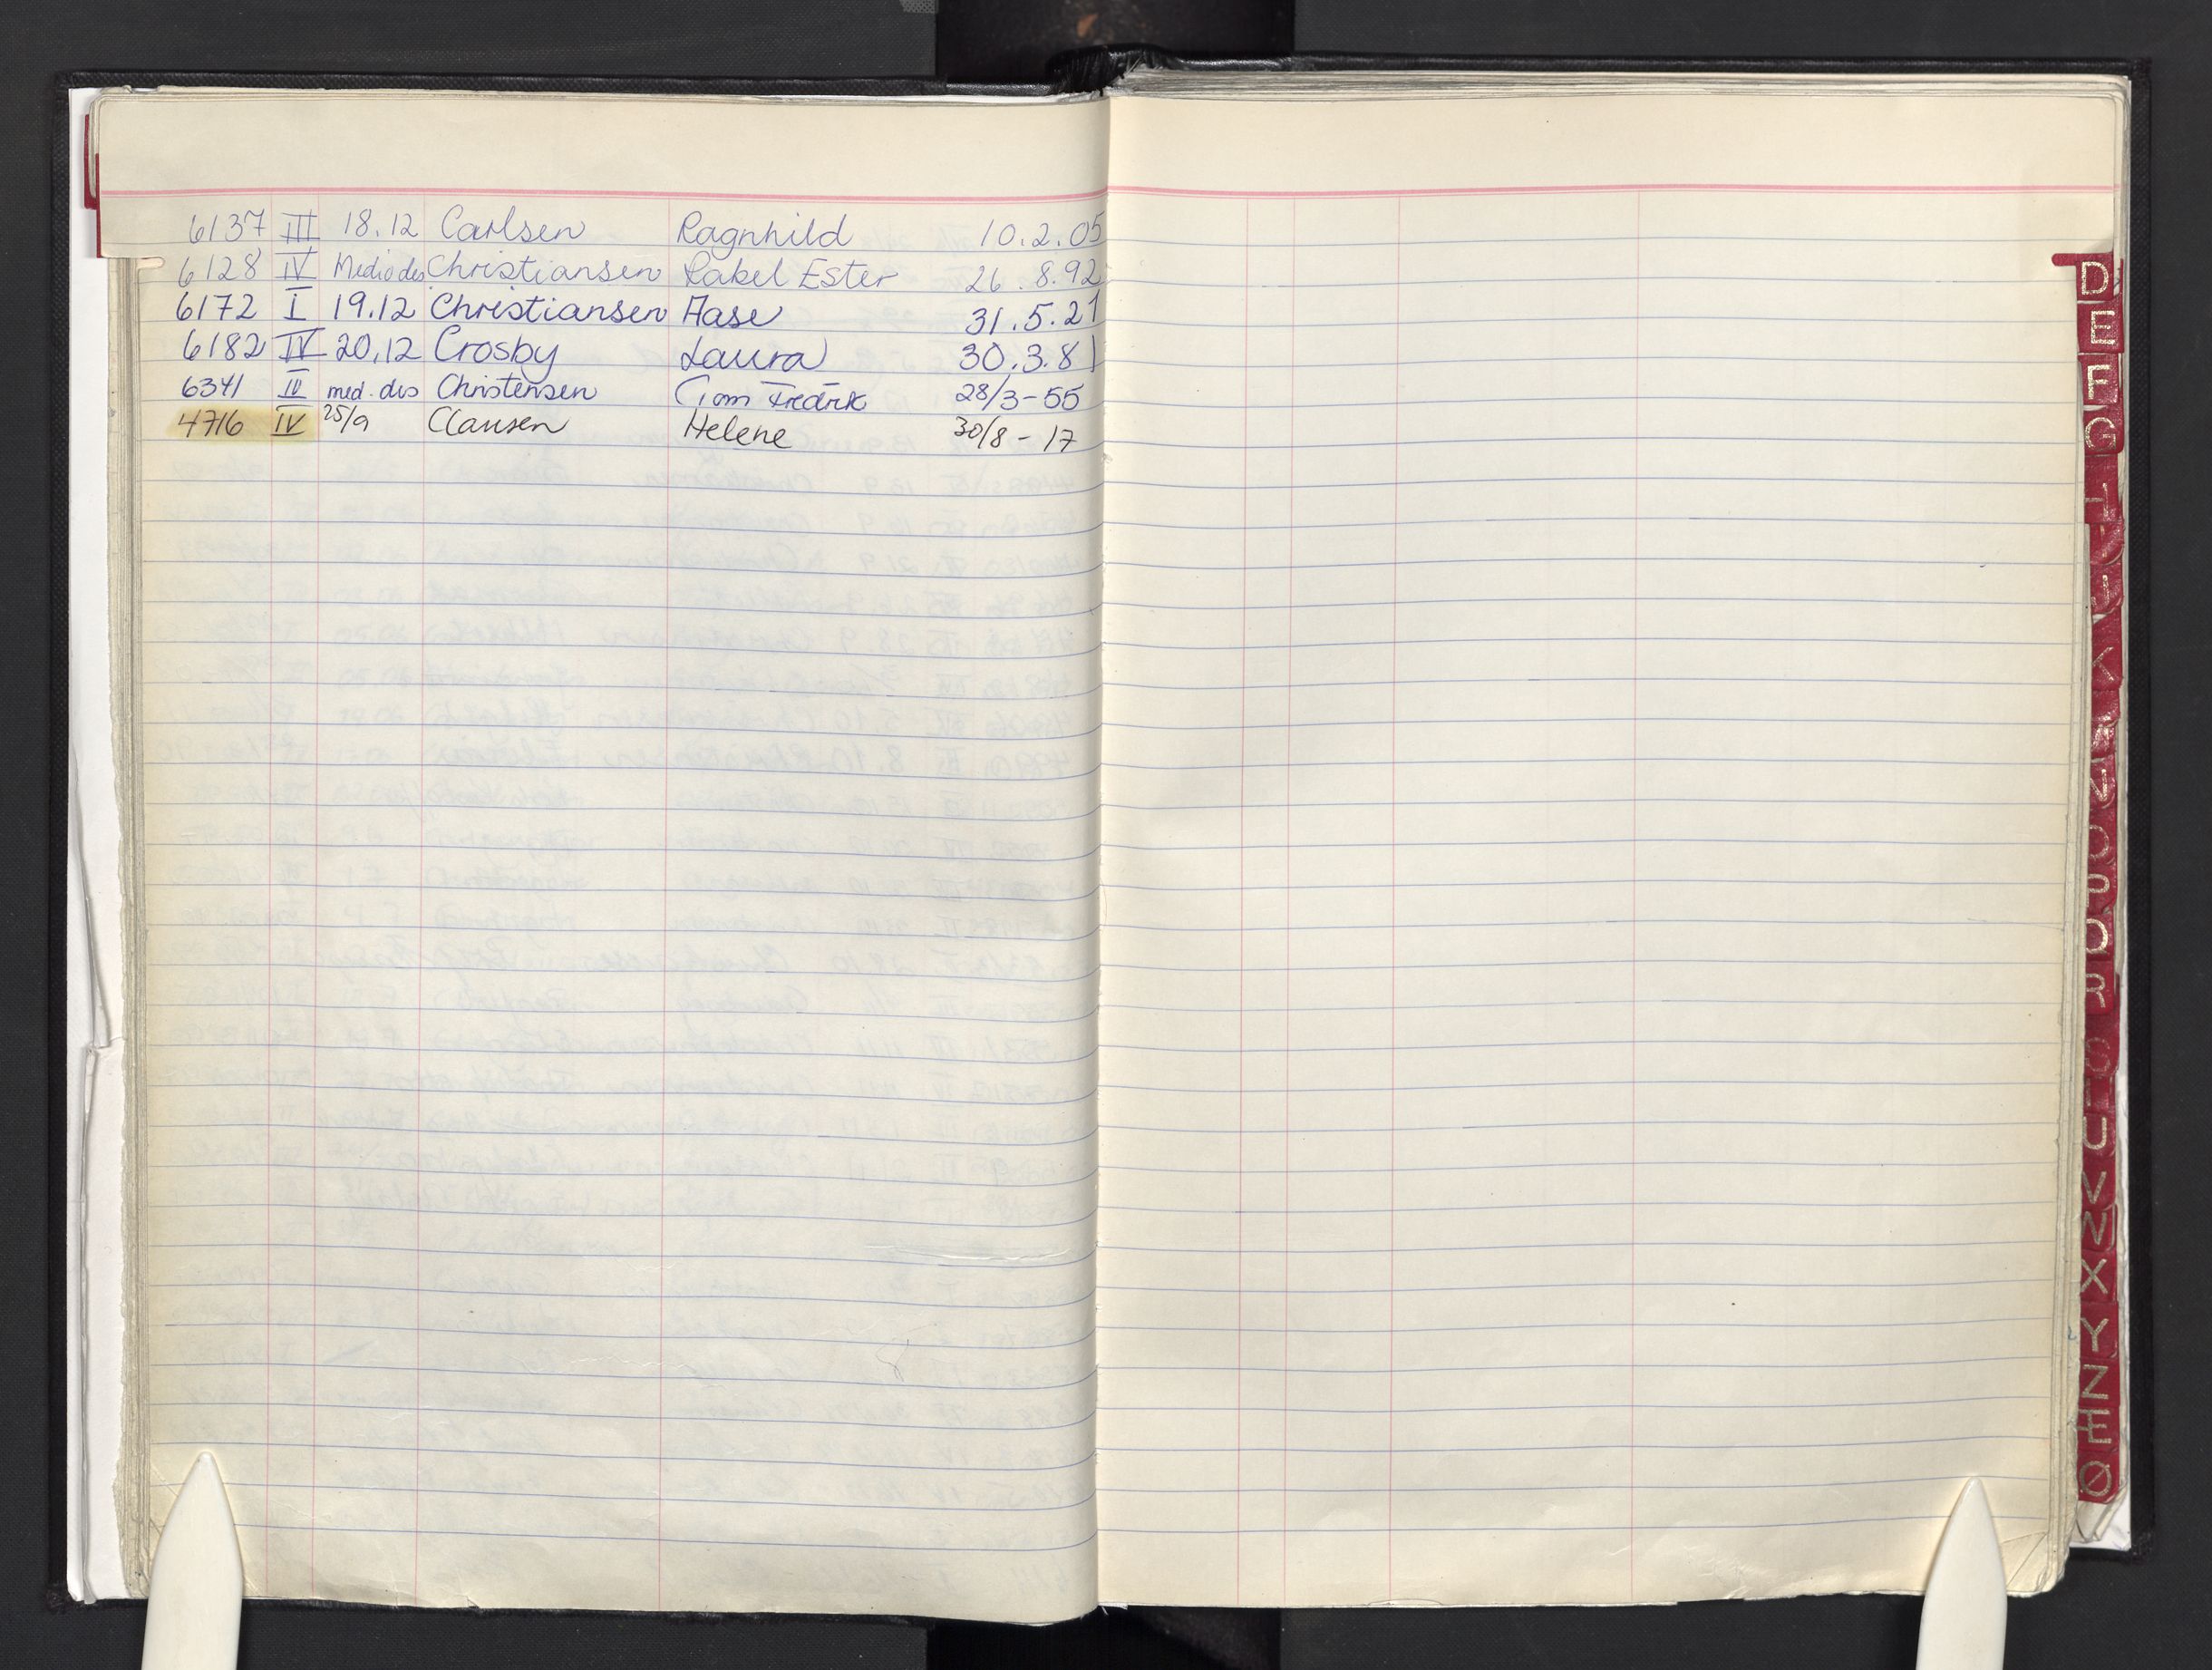 6137 III 18.12 Carlsen Ragnhild 10.2.05
6128 IV Medio des Christiansen Rakel Ester 26.8.92
6172 I 19.12 Christiansen Aase 31.5.21
6182 IV 20.12 Crosby Laura 30.3.81
6341 IV med. des Christensen Tom Fredrik 28/3-55
4716 IV 25/9 Clausen Helene 30/8-17
D
E
F
G
I
J
K
N
O
P
Q
R
S
U
V
W
X
Y
Z
Æ
Ø